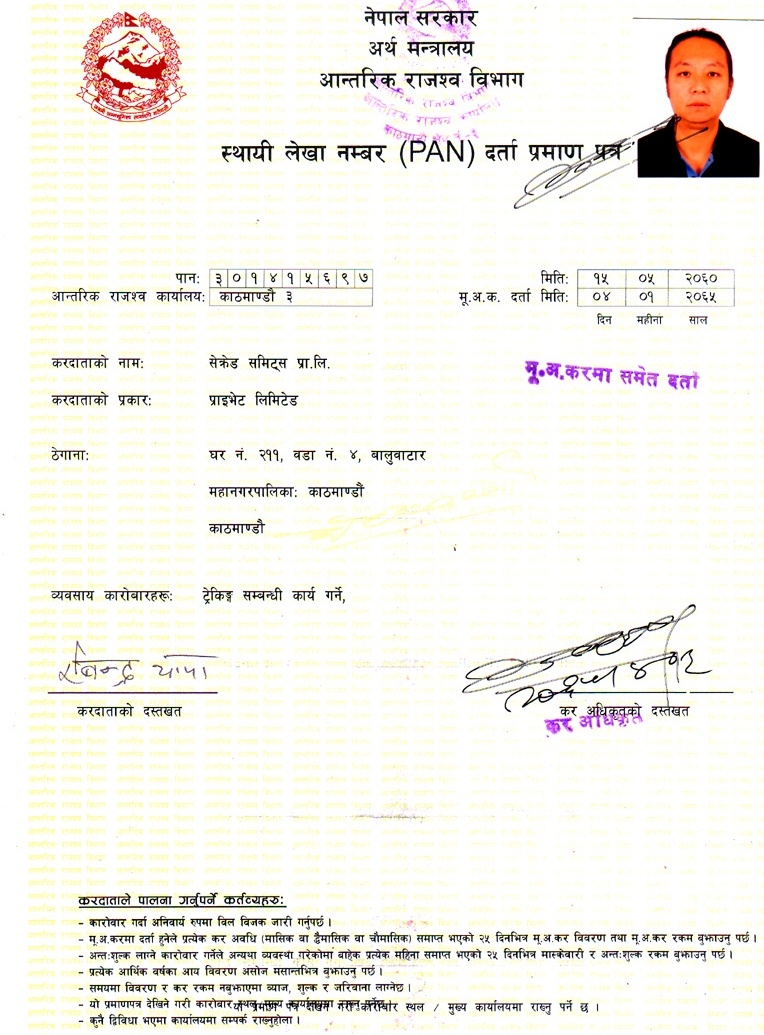 नेपाल सरकार
अर्थ मन्त्रालय
आन्तरिक राजश्व विभाग
स्थायी लेखा नम्बर (PAN) दर्ता प्रमाण पत्र
पान: ३ ० १ ४ १ ५ ६ ९ ७
मिति: १५ ०५ २०६०
आन्तरिक राजश्व कार्यालय: काठमाण्डौ ३
मू.अ.क. दर्ता मिति: ०४ ०१ २०६५
दिन महीना साल
करदाताको नाम: सेक्रेड समिट्स प्रा.लि.
मू.अ.करमा समेत दर्ता
करदाताको प्रकार: प्राइभेट लिमिटेड
ठेगाना: घर नं. २११, वडा नं. ४, बालुवाटार
महानगरपालिका: काठमाण्डौं
काठमाण्डौ
व्यवसाय कारोबारहरू: ट्रेकिङ्ग सम्बन्धी कार्य गर्ने,
रबिन्द्र थापा
करदाताको दस्तखत
कर अधिकृतको दस्तखत
कर अधिकृत
करदाताले पालना गर्नुपर्ने कर्तव्यहरु:
- कारोबार गर्दा अनिवार्य रुपमा विल विजक जारी गर्नुपर्छ ।
- मू.अ.करमा दर्ता हुनेले प्रत्येक कर अवधि (मासिक वा द्वैमासिक वा चौमासिक) समाप्त भएको २५ दिनभित्र मू.अ.कर विवरण तथा मू.अ.कर रकम बुझाउनु पर्छ ।
- अन्त:शुल्क लाग्ने कारोबार गर्नेले अन्यथा व्यवस्था गरेकोमा बाहेक प्रत्येक महिना समाप्त भएको २५ दिनभित्र मास्केवारी र अन्त:शुल्क रकम बुझाउनु पर्छ ।
- प्रत्येक आर्थिक बर्षका आय विवरण असोज मसान्तभित्र बुझाउनु पर्छ ।
- समयमा विवरण र कर रकम नबुझाएमा ब्याज, शुल्क र जरिवाना लाग्नेछ ।
- यो प्रमाणपत्र देखिने गरी कारोबार स्थल, मुख्य कार्यालयमा राख्नु पर्नेछ ।
यो प्रमाण पत्र देखिने गरी कारोबार स्थल / मुख्य कार्यालयमा राख्नु पर्ने छ ।
- कुनै द्विविधा भएमा कार्यालयमा सम्पर्क राख्नुहोला ।